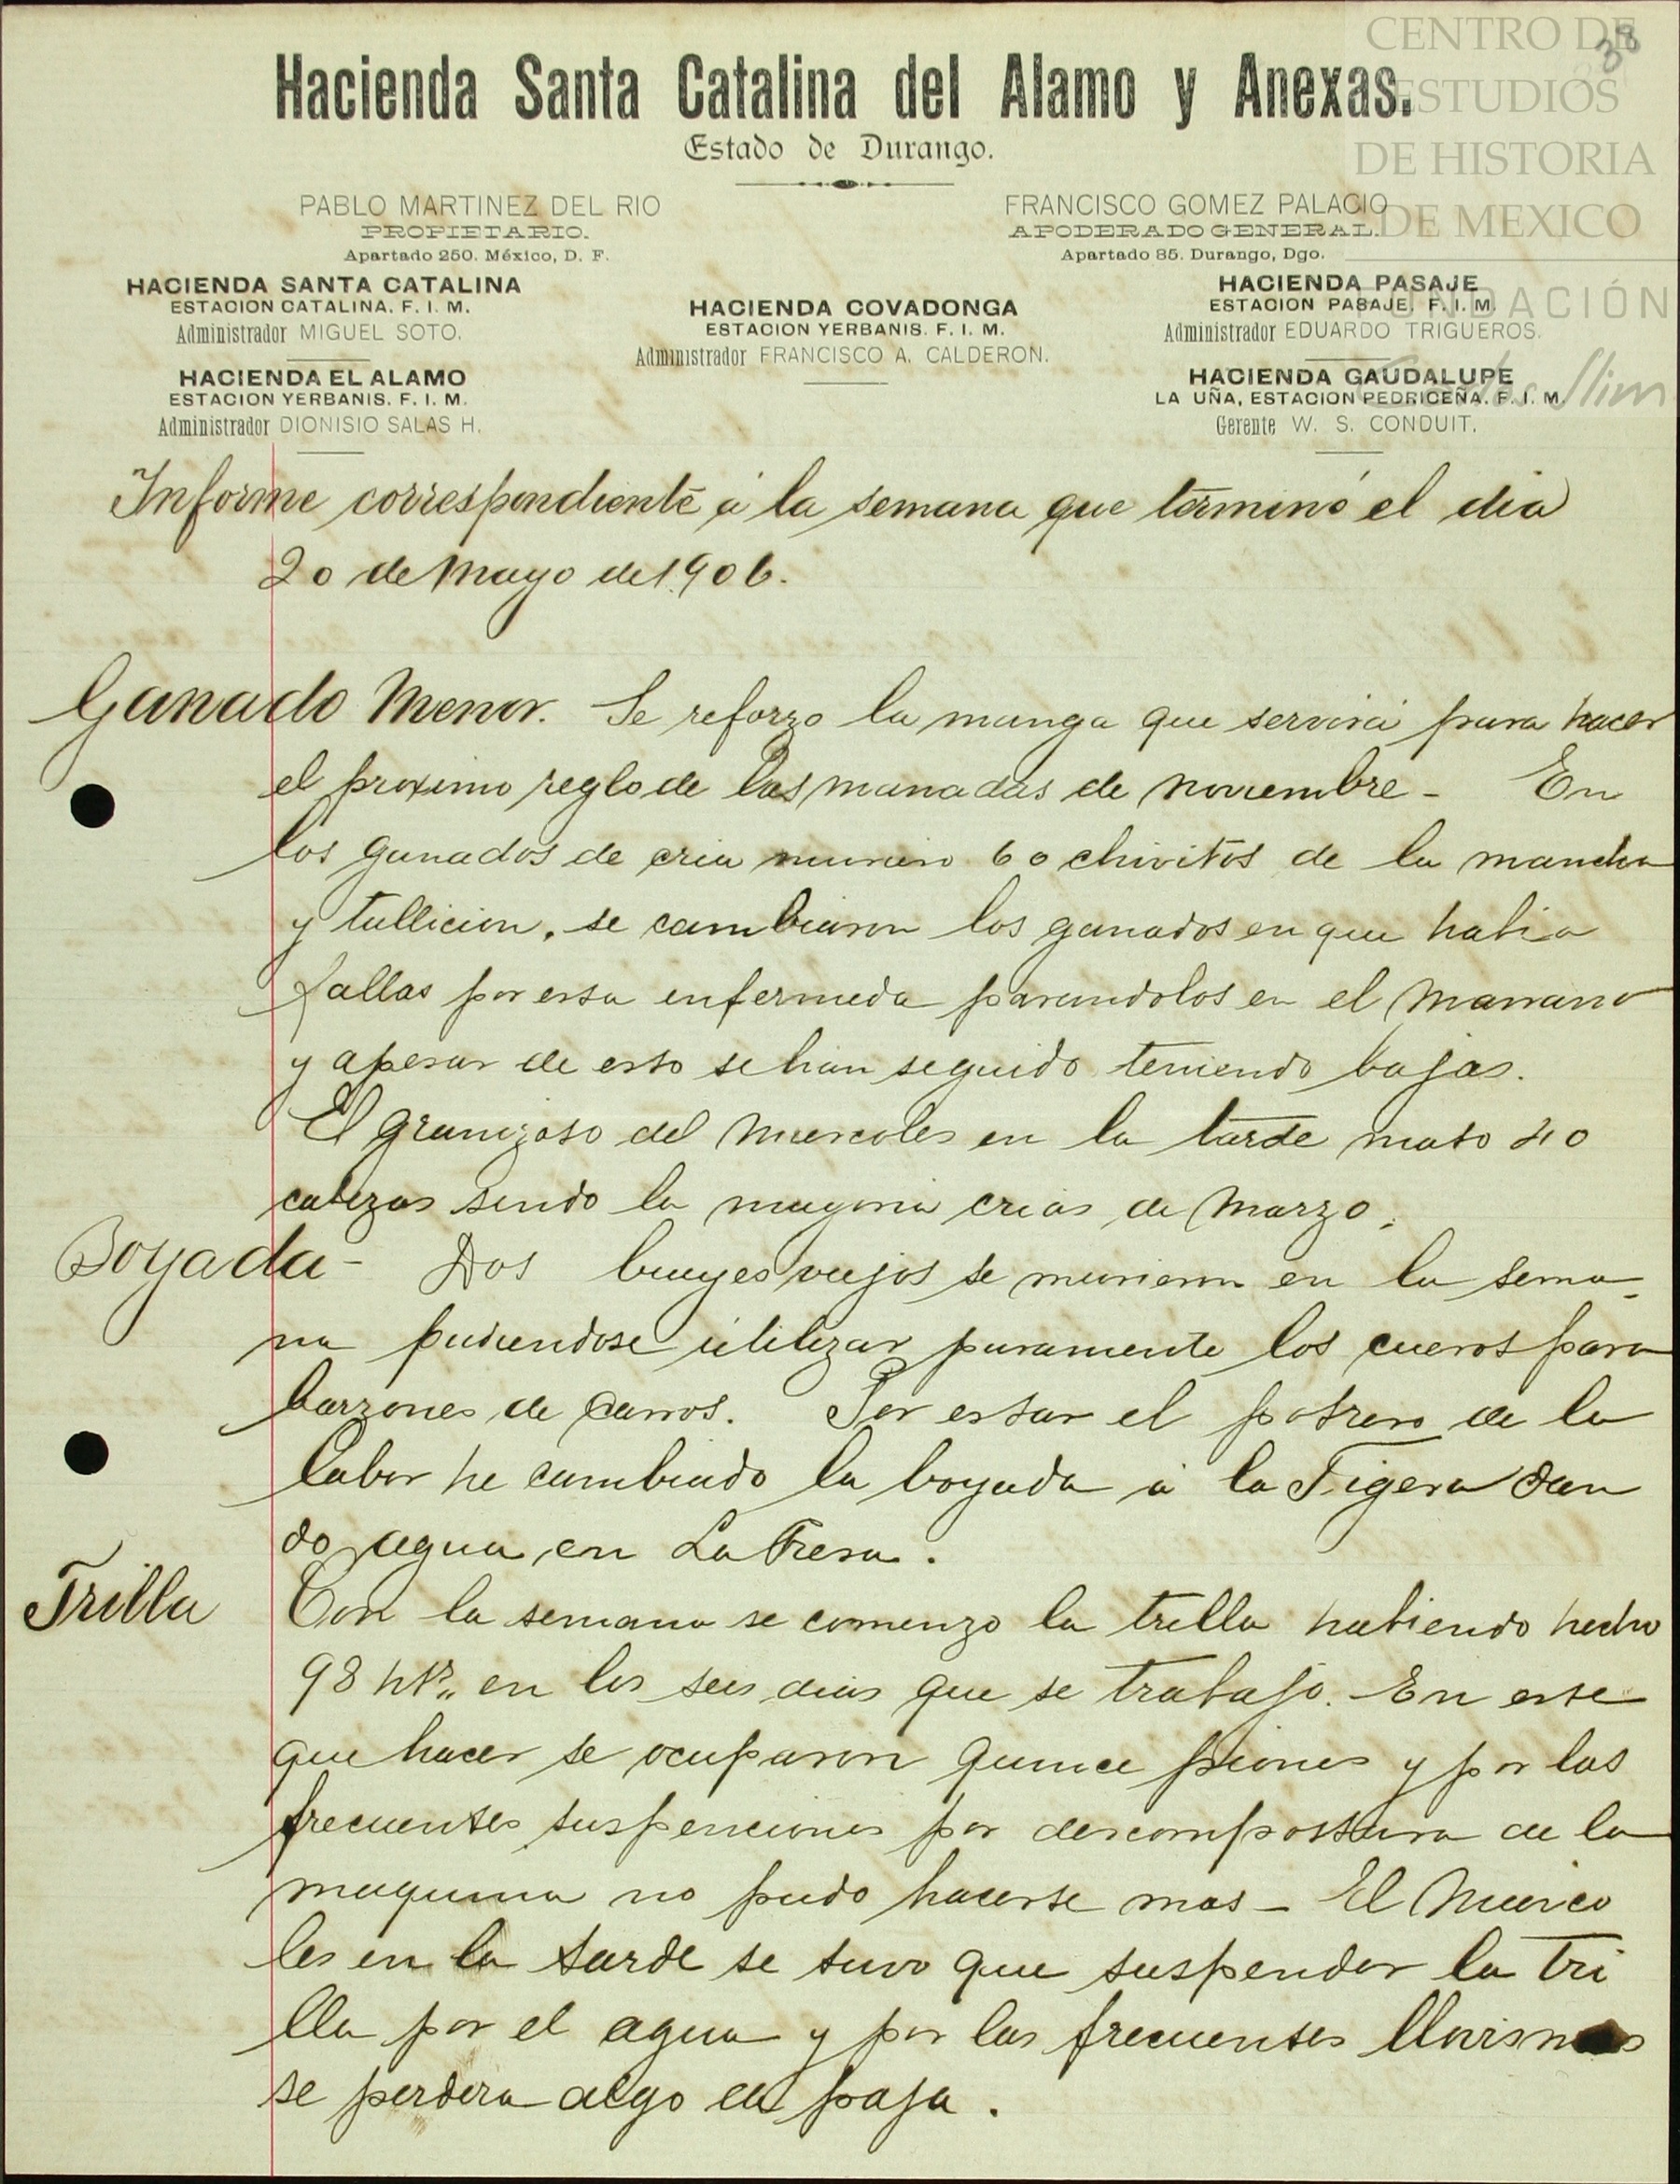 CENTRO DE
ESTUDIOS
DE HISTORIA
DE MEXICO
FUNDACIÓN
Carlos Slim
38
Hacienda Santa Catalina del Alamo y Anexas.
Estado de Durango.
PABLO MARTINEZ DEL RIO
PROPIETARIO.
Apartado 250. México, D. F.
FRANCISCO GOMEZ PALACIO
APODERADO GENERAL.
Apartado 85. Durango, Dgo.
HACIENDA SANTA CATALINA
ESTACION CATALINA. F. I. M.
Administrador MIGUEL SOTO.
HACIENDA EL ALAMO
ESTACION YERBANIS. F. I. M.
Administrador DIONISIO SALAS H.
HACIENDA COVADONGA
ESTACION YERBANIS. F. I. M.
Administrador FRANCISCO A. CALDERON.
HACIENDA PASAJE
ESTACION PASAJE. F. I. M.
Administrador EDUARDO TRIGUEROS.
HACIENDA GAUDALUPE
LA UÑA, ESTACION PEDRICEÑA. F. I. M.
Gerente W. S. CONDUIT.
Informe correspondiente á la semana que terminó el dia
20 de Mayo de 1906.
Ganado Menor. Se reforzo la manga que servirá para hacer
el proximo reglo de las manadas de noviembre - En
los ganados de cria murieron 60 chivitos de la mancha
y tullicion, se cambiaron los ganados en que habia
fallas por esta enfermeda parandolos en el Marrano
y apesar de esto se han seguido teniendo bajas.
El granizoso del Miercoles en la tarde mato 40
cabezas sendo la mayoria crias de Marzo.
Boyada - Dos bueyes viejos se murieron en la sema-
na pudiendose utilizar puramente los cueros para
barzones de carros. Por estar el potrero de la
labor he cambiado la boyada á la Tigera dan
do agua en La Presa.
Trilla Con la semana se comenzo la trilla habiendo hecho
98 en los seis dias que se trabajo. En este
que hacer se ocuparon quince piones y por las
frecuentes suspenciones por descompostura de la
maquina no pudo hacerse mas - El Mierco
les en la tarde se tuvo que suspender la tri
lla por el agua y por las frecuentes lloviznas
se perdera algo de paja.